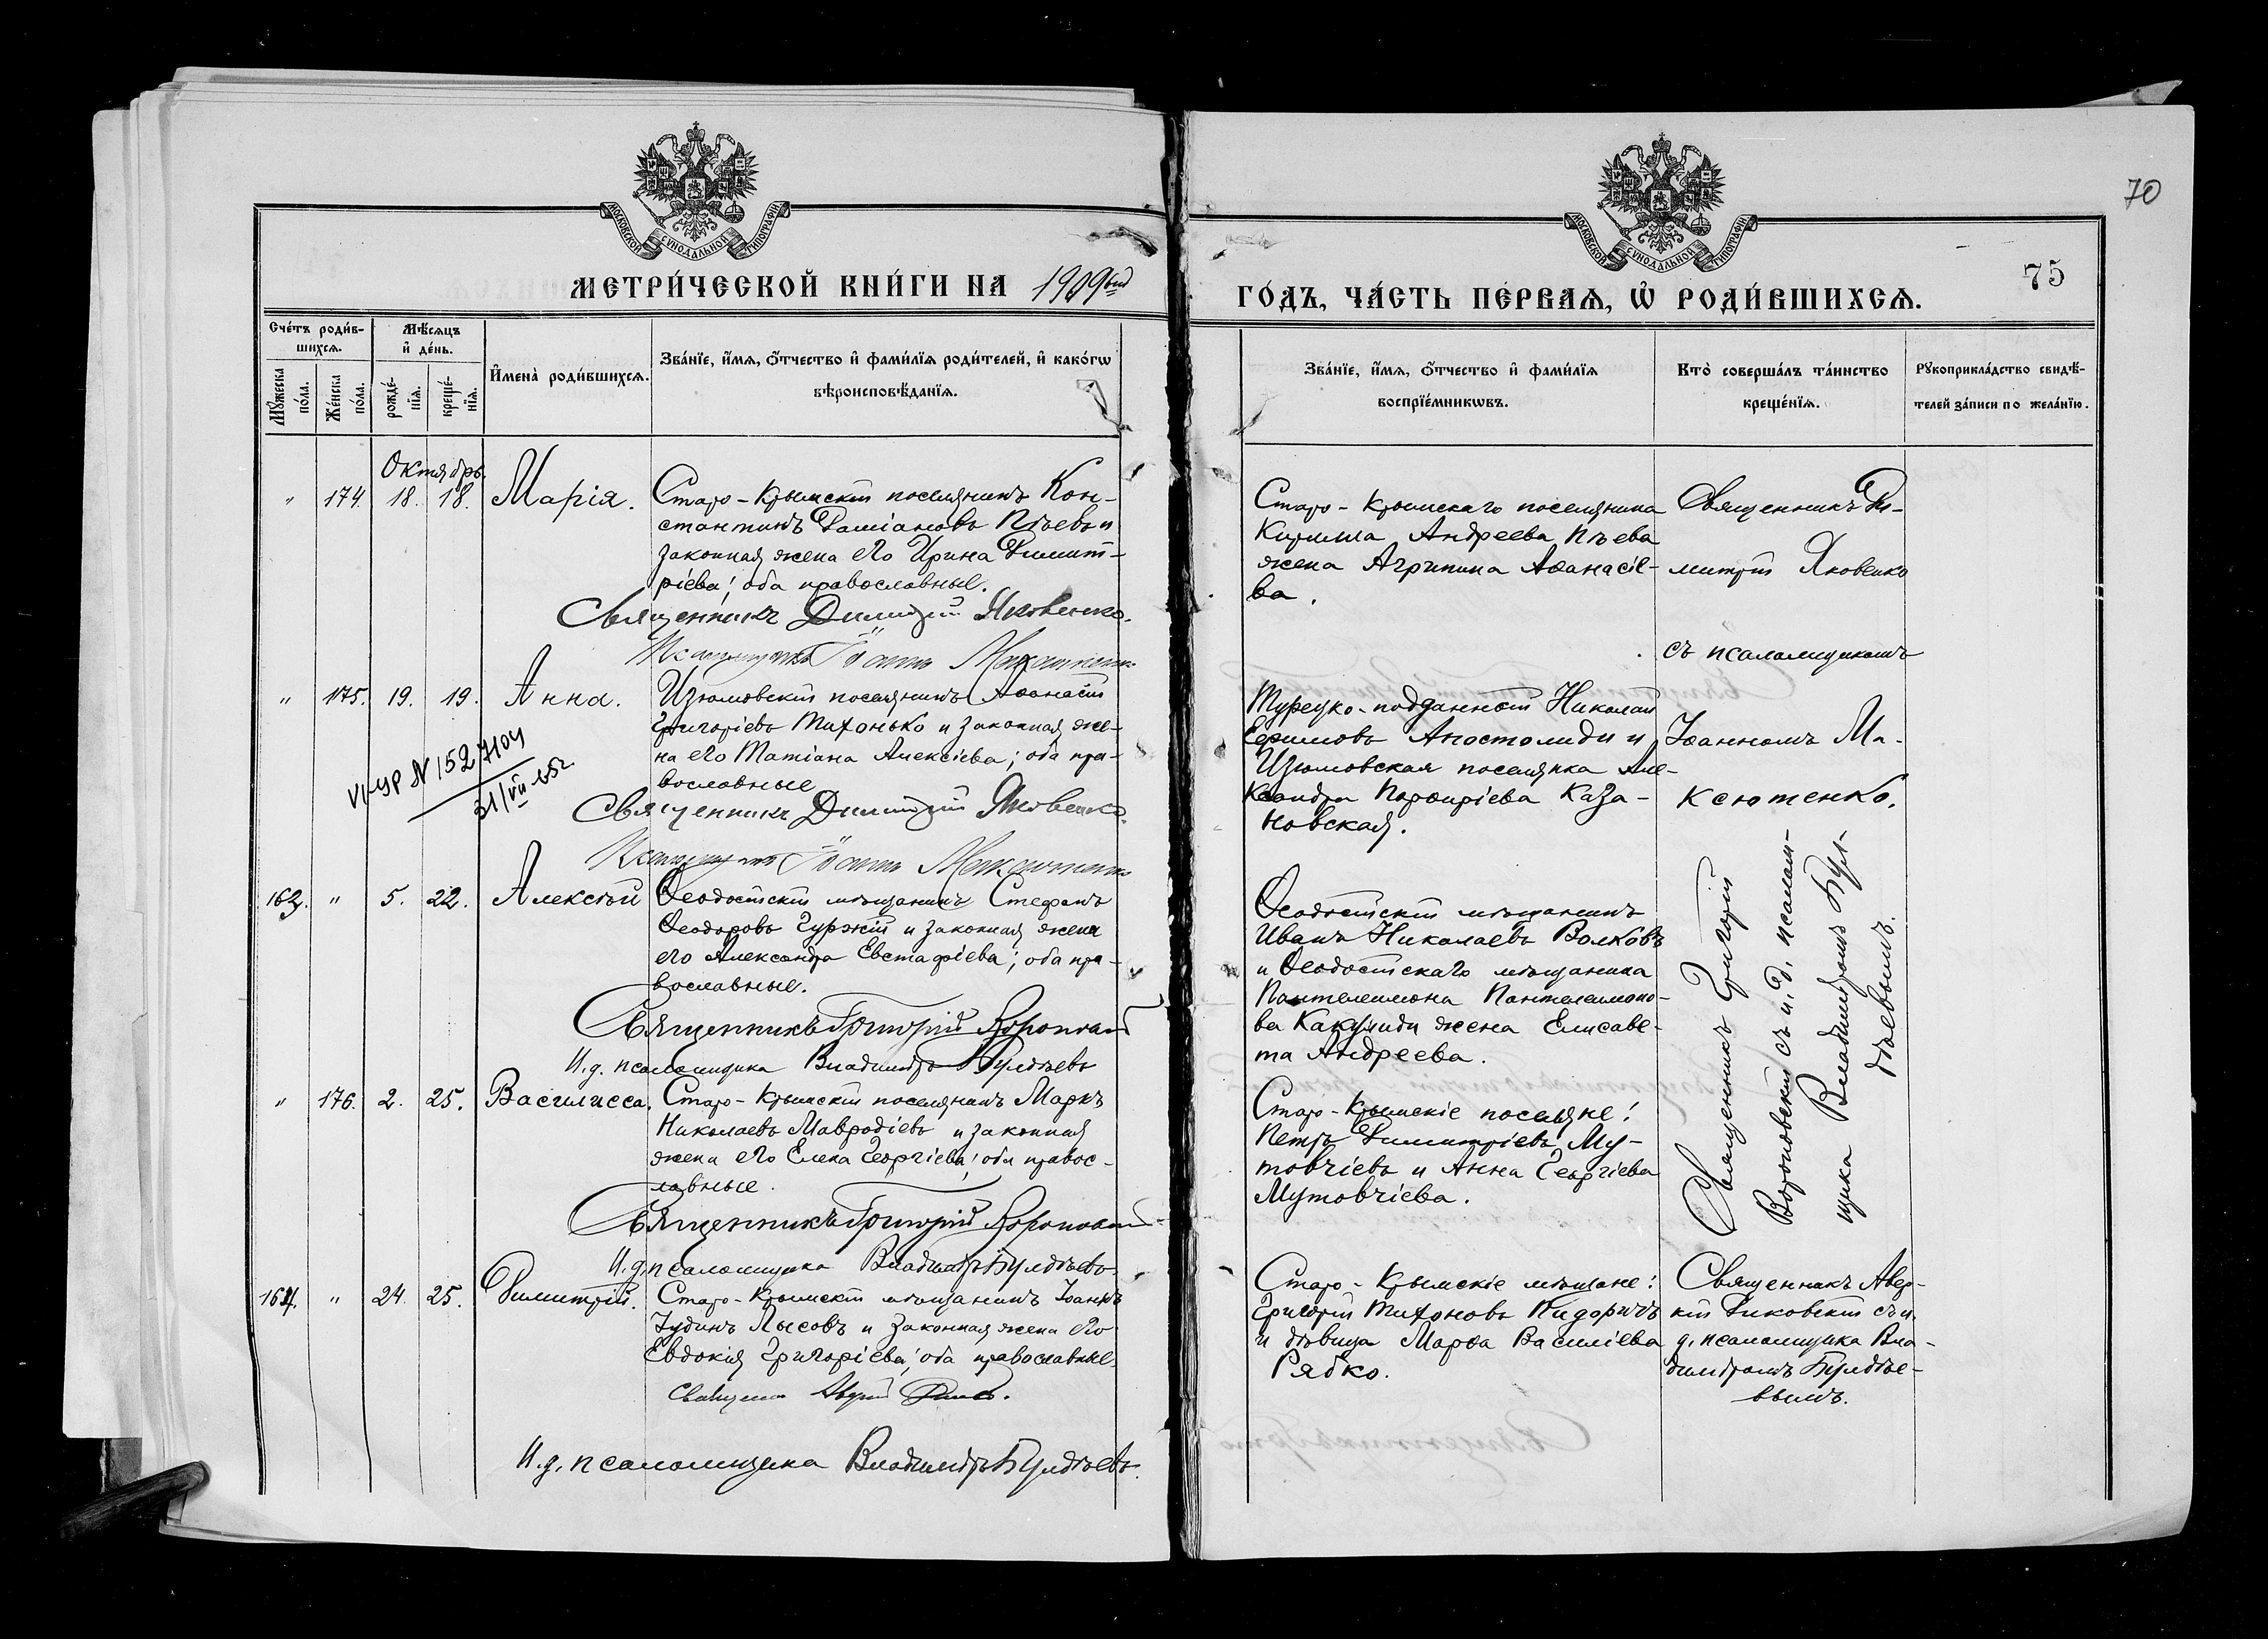 МОСКОВСКОЙ СѴНОДАЛЬНОЙ ТИПОГРАФІИ
МЕТРИ́ЧЕСКОЙ КНИ́ГИ НА 1909ый
Сче́тъ роди́в-
шихсѧ.
Мѣ́сѧцъ
и҆ де́нь.
Мꙋ́жеска
по́ла.
Же́нска
по́ла.
рожде́-
нїѧ.
креще́-
нїѧ.
И҆мена̀ роди́вшихсѧ.
Зва́нїе, и҆́мѧ, ѻ҆́тчество и҆ фами́лїѧ роди́телей, и҆ како́гѡ
вѣроисповѣ́данїѧ.
Октябрь.
" 174. 18. 18. Марія. Старо-Крымскій поселянинъ Кон-
стантинъ Даміановъ Пѣевъ и
законная жена его Ирина Димит-
ріева; оба православные.
Священникъ Димитрій Яковенко.
Псаломщикъ Іоаннъ Максютенко
" 175. 19. 19. Анна. Изюмовскій поселянинъ Аѳанасій
Григорьевъ Тихонько и законная же-
на его Татіана Алексіева; оба пра-
вославные
VI-УР N 1527104
31/VII
Священникъ Димитрій Яковенко.
Псаломщикъ Іоаннъ Максютенко
163. " 5. 22. Алексѣй Ѳеодосійскій мѣщанинъ Стефанъ
Ѳеодоровъ Гуржій и законная жена
его Александра Евстафіева; оба пра-
вославные.
Священникъ Григорій Вороновскій
И.д. псаломщика Владиміръ Булдѣевъ
" 176. 2. 25. Василисса. Старо-Крымскій поселянинъ Маркъ
Николаевъ Мавродіевъ и законная
жена его Елена Георгіева; оба правос-
лавные.
Священникъ Григорій Вороновскій
И.д. псаломщика Владиміръ Булдѣевъ
164. " 24. 25. Димитрій. Старо-Крымскій мѣщанинъ Іоаннъ
Іудинъ Лысовъ и законная жена его
Евдокія Григоріева; оба православные
И.д. псаломщика Владиміръ Булдѣевъ.
70
75
МОСКОВСКОЙ СѴНОДАЛЬНОЙ ТИПОГРАФІИ
ГО́ДЪ, ЧА́СТЬ ПЕ́РВАѦ, Ѽ РОДИ́ВШИХСѦ.
Зва́нїе, и҆́мѧ, ѻ҆́тчество и҆ фами́лїѧ
воспрїе́мникѡвъ.
Кто̀ соверша́лъ та́инство
креще́нїѧ.
Рꙋкоприкла́дство свидѣ́-
телей за́писи по жела́нїю.
Старо-Крымскаго поселянина
Кирилла Андреева Пѣева
жена Агрипина Аѳанасіе-
ва.
Священникъ Ди-
митрій Яковенко
съ псаломщикомъ
Іоанномъ Ма-
ксютенко.
Турецко-подданный Николай
Ефимовъ Апостолиди и
Изюмовская поселянка Але-
ксандра Порфиріева Каза-
новская.
Ѳеодосійскій мѣщанинъ
Иванъ Николаевъ Волковъ
и Ѳеодосійскаго мѣщанина
Пантелеимона Пантелеимоно-
ва Какулиди жена Елисаве-
та Андреева.
Священникъ Григорій
Вороновскій съ и.д. псалом-
щика Владиміромъ Бул-
дѣевымъ.
Старо-Крымскіе поселяне:
Петръ Димитріевъ Му-
товчіевъ и Анна Георгіева
Мутовчіева.
Старо-Крымскіе мѣщане:
Григорій Тихоновъ Пидоричъ
и дѣвица Марѳа Василіева
Рябко.
Священникъ Авер-
кій Диковскій съ и.
д. псаломщика Вла-
диміромъ Булдѣе-
вымъ.